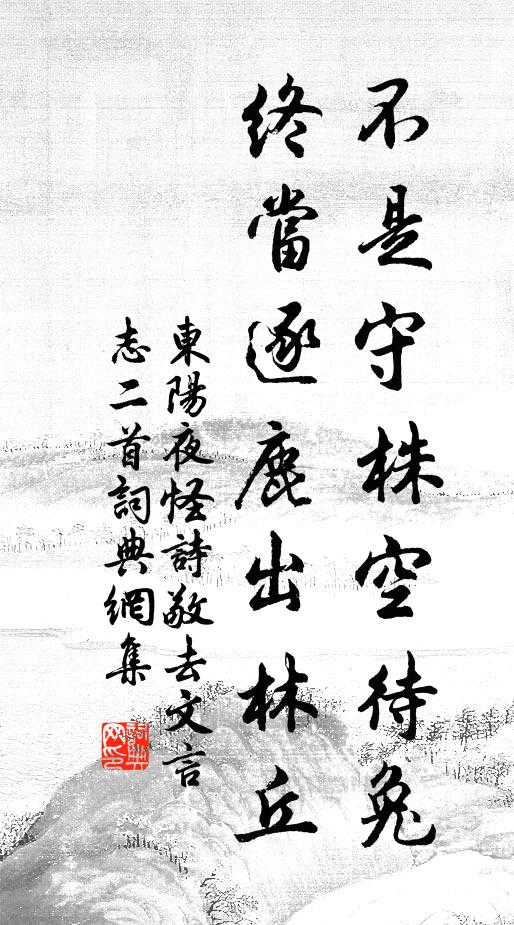 不是守株空待兔
終當逐鹿出林丘
東陽夜怪詩敬去文言
志二首詞典網集